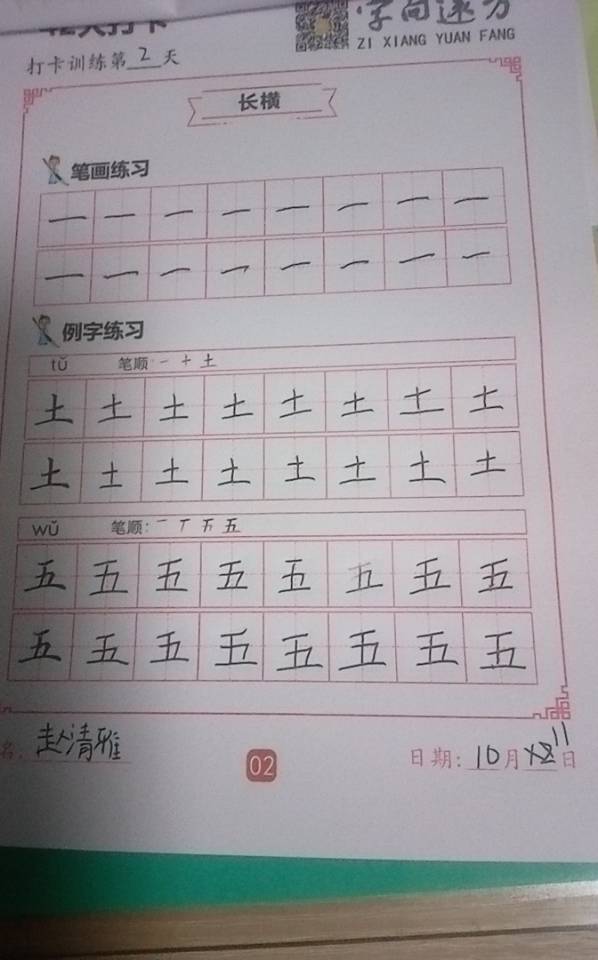 字向逐方
ZI XIANG YUAN FANG
打卡训练第2天
长横
笔画练习
一 一 一 一 一 一 一 一
一 一 一 一 一 一 一 一
例字练习
tǔ 笔顺: 一 十 土
土 土 土 土 土 土 土 土
土 土 土 土 土 土 土 土
wǔ 笔顺: 一 丅 五 五
五 五 五 五 五 五 五 五
五 五 五 五 五 五 五 五
名: 赵清雅
02
日期: 10月11日